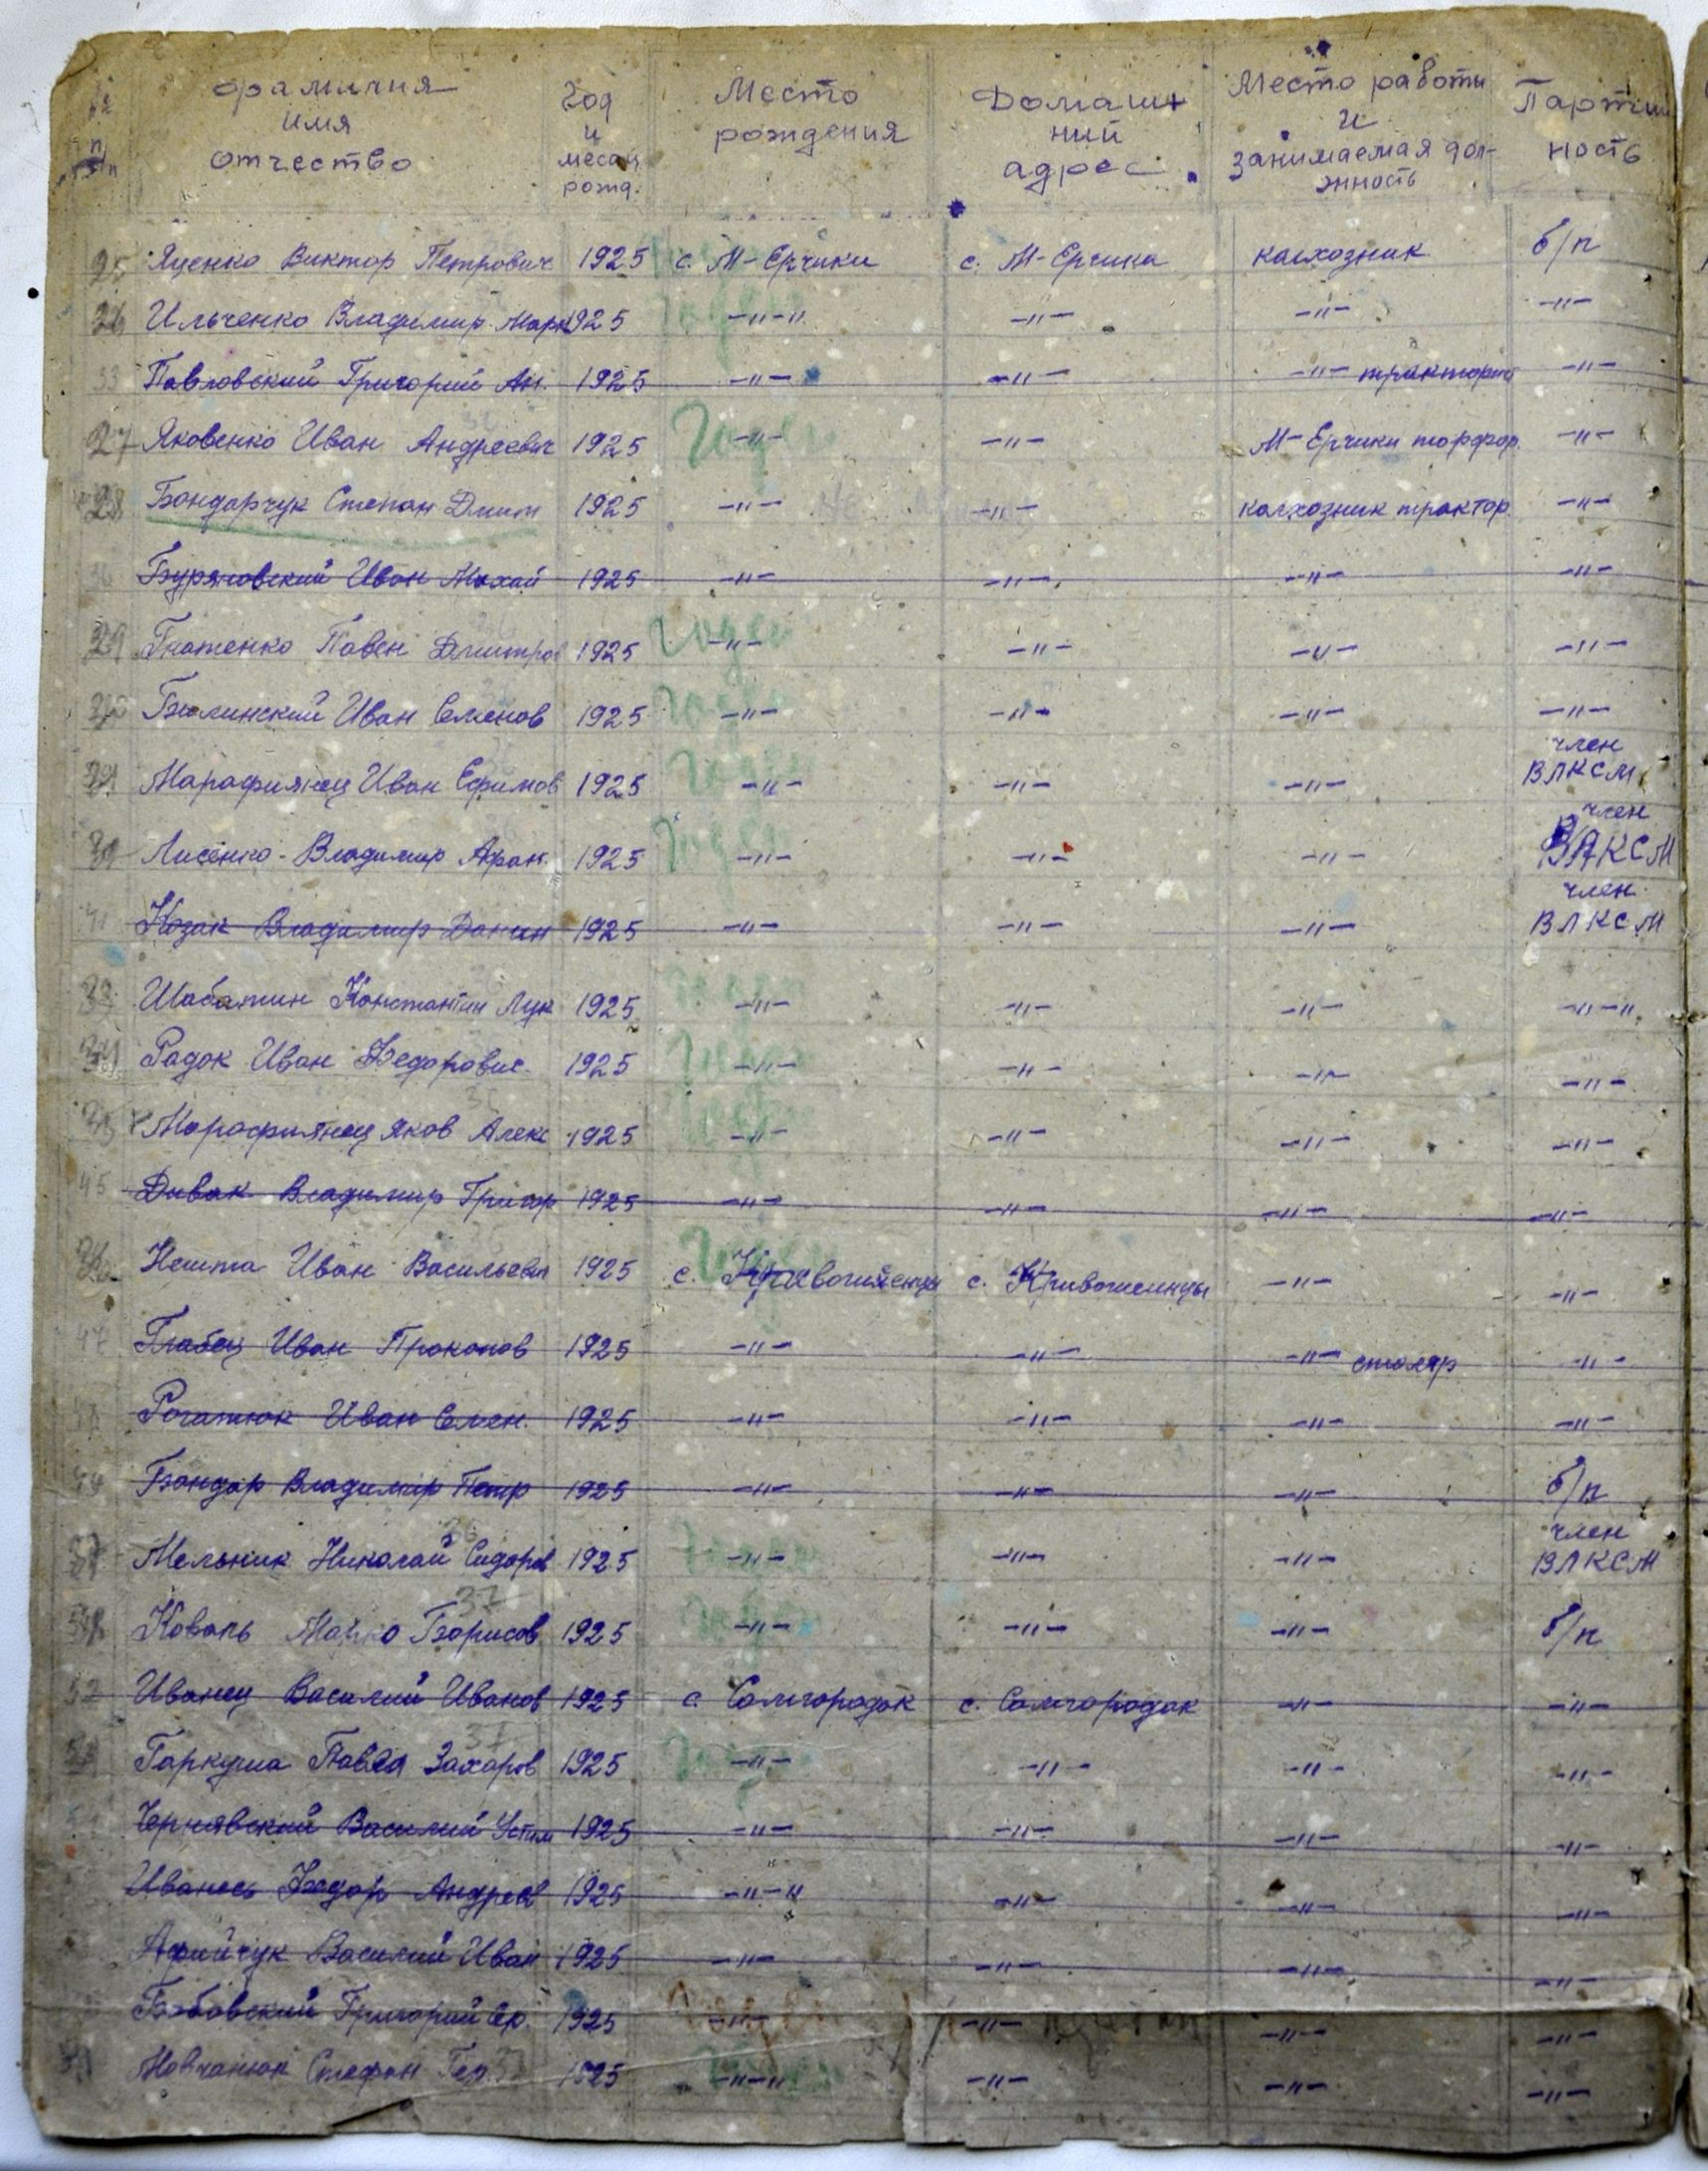 п/п Фамилия имя отчество Год и месяц рожд. Место рождения Домашний адрес Место работы и занимаемая должность Партийность
25 Яценко Виктор Петрович 1925 с. М-Ерчики с. М-Ерчики колхозник б/п
26 Ильченко Владимир Марк 1925 -"-" -"- -"- -"-
33 Павловский Григорий Ан. 1925 -"- -"- -"- тракторист -"-
27 Яковенко Иван Андреевич 1925 -"- -"- М-Ерчики торфор. -"-
28 Бондарчук Степан Дмит 1925 -"- -"- колхозник трактор. -"-
Буряковский Иван Михай 1925 -"- -"- -"- -"-
29 Гнатенко Павел Дмитров 1925 -"- -"- -"- -"-
30 Билинский Иван Семенов 1925 -"- -"- -"- -"-
31 Марафиянец Иван Ефимов 1925 -"- -"- -"- член ВЛКСМ
Лисенко Владимир Афан. 1925 -"- -"- -"- член ВЛКСМ
41 Козак Владимир Данил 1925 -"- -"- -"- член ВЛКСМ
33 Шабатин Константин Лук 1925 -"- -"- -"- -"-"
34 Радок Иван Федорович 1925 -"- -"- -"- -"-
35 Марафиянец Яков Алекс 1925 -"- -"- -"- -"-
45 Дивак Владимир Григор 1925 -"- -"- -"- -"-
36 Нешта Иван Васильевич 1925 с. Кривошеинцы с. Кривошеинцы -"- -"-
47 Глабец Иван Прокопов 1925 -"- -"- -"- столяр -"-
Рогатюк Иван Семен. 1925 -"- -"- -"- -"-
49 Бондар Владимир Петр 1925 -"- -"- -"- б/п
37 Мельник Николай Сидоров 1925 -"- -"- -"- член ВЛКСМ
38 Коваль Марко Борисов 1925 -"- -"- -"- б/п
52 Иванец Василий Иванов 1925 с. Самгородок с. Самгородок -"- -"-
Гаркуша Павел Захаров 1925 -"- -"- -"- -"-
Чернявский Василий Устим 1925 -"- -"- -"- -"-
Федор Андреев 1925 -"-" -"- -"- -"-
Василий Иван 1925 -"- -"- -"- -"-
Бабовский Григорий 1925 -"- -"- -"- -"-
Мовчанюк Стефан 1925 -"-" -"- -"- -"-